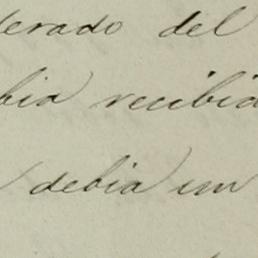 derado del
bia recibid
debia un